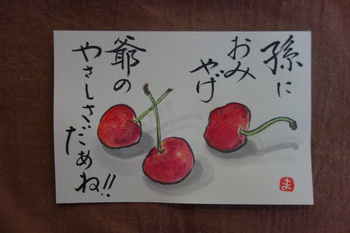 孫に
おみ
やげ
爺の
やさしさだあね!!
ま